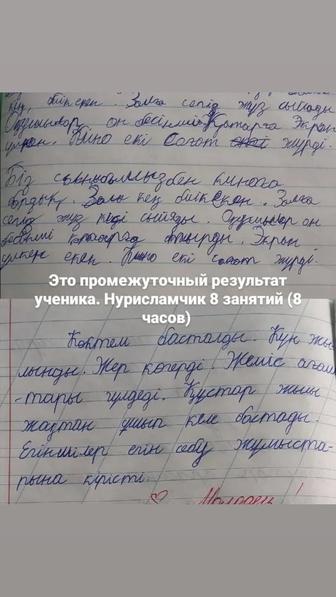 кең, биік екен. Залға сегіз жүз сыяды.
Оқушылар он бесінші қатарға Экран
үлкен. Кино екі сағат жүрді.
Біз сыныбымызбен киноға
бардық. Залы кең биік екен. Залға
сегіз жүз сыяды. Оқушылар он
бесінші қатарға отырды. Экран
үлкен екен. Кино екі сағат жүрді.
Это промежуточный результат
ученика. Нурисламчик 8 занятий (8
часов)
Көктем басталды. Күн жы
лынды. Жер көгерді. Жеміс ағаш
-тары гүлдеді. Құстар жылы
жақтан ұшып келе бастады.
Егіншілер егін себу жұмыста-
рына кірісті.
Молодец!